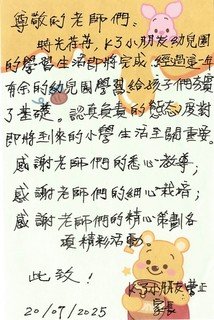 尊敬的老師們、
時光荏苒，K3小朋友幼兒園
的學習生活即將完成。經過這一年
有余的幼兒園學習給孩子們夯實
了基礎。認真負責的態度對
即將到來的小學生活至關重要。
感謝老師們的悉心教導；
感謝老師們的細心栽培；
感謝老師們的精心策劃各
項精彩活動。
此致！
K3小朋友
家長
20/07/2025